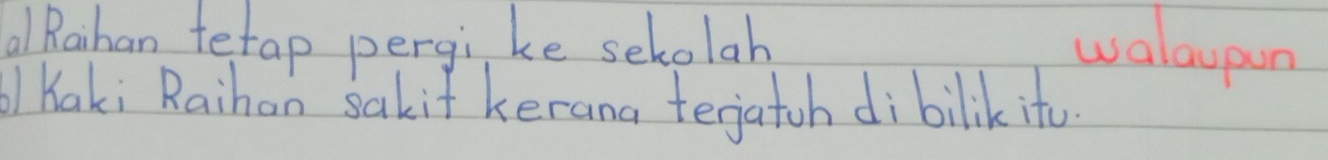 a) Raihan tetap pergi ke sekolah walaupun
b) Kaki Raihan sakit kerana terjatuh di bilik itu.